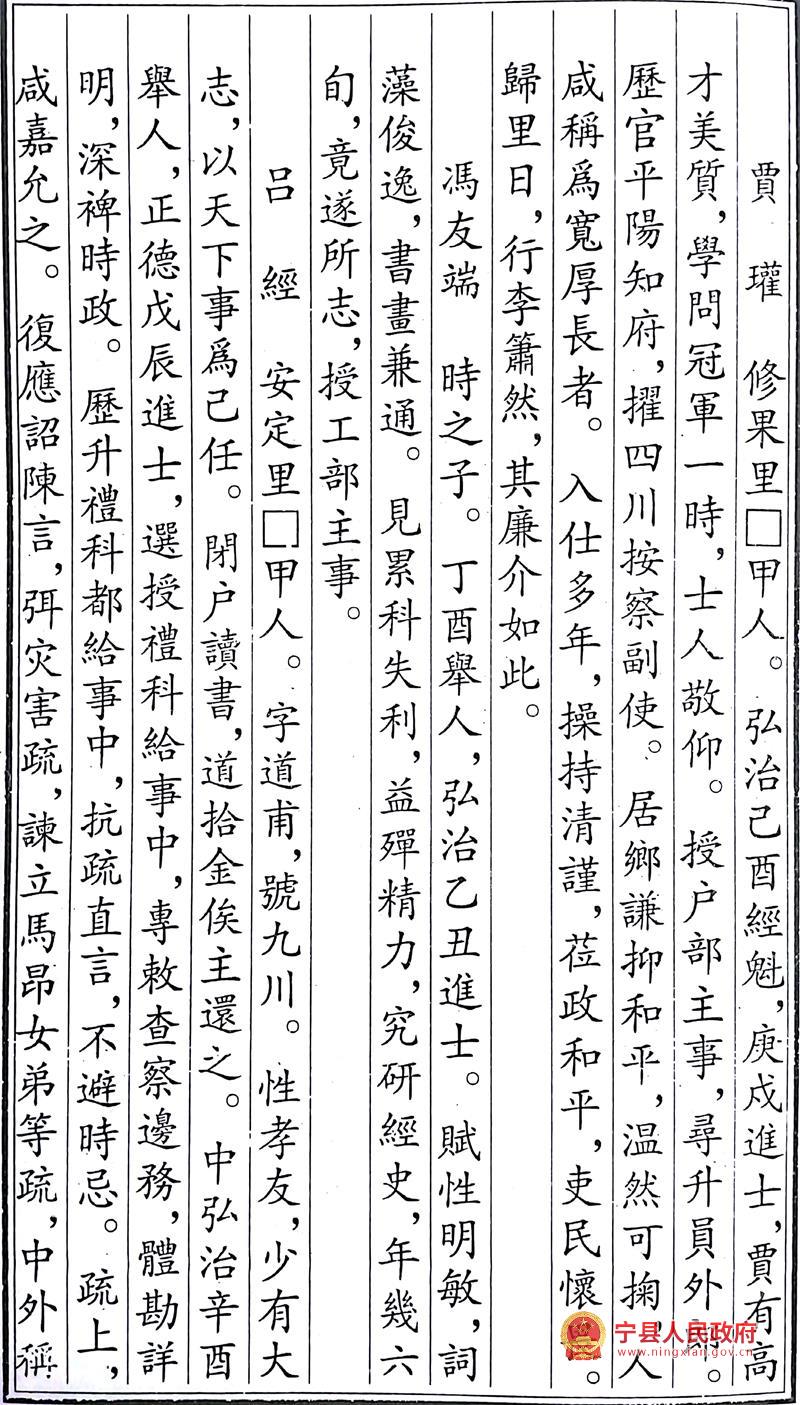 賈　瓘　修果里□甲人。弘治己酉經魁，庚戍進士，賈有高
才美質，學問冠軍一時，士人敬仰。授户部主事，尋升員外郎。
歷官平陽知府，擢四川按察副使。居鄉謙抑和平，温然可掬，人
咸稱爲寬厚長者。入仕多年，操持清謹，莅政和平，吏民懷
歸里日，行李簫然，其廉介如此。
馮友端　時之子。丁酉舉人，弘治乙丑進士。賦性明敏，詞
藻俊逸，書畫兼通。見累科失利，益殫精力，究研經史，年幾六
旬，竟遂所志，授工部主事。
吕　經　安定里□甲人。字道甫，號九川。性孝友，少有大
志，以天下事爲己任。閉户讀書，道拾金俟主還之。中弘治辛酉
舉人，正德戊辰進士，選授禮科給事中，專敕查察邊務，體勘詳
明，深裨時政。歷升禮科都給事中，抗疏直言，不避時忌。疏上，
咸嘉允之。復應詔陳言，弭灾害疏，諫立馬昂女弟等疏，中外稱
宁县人民政府
www.ningxian.gov.cn